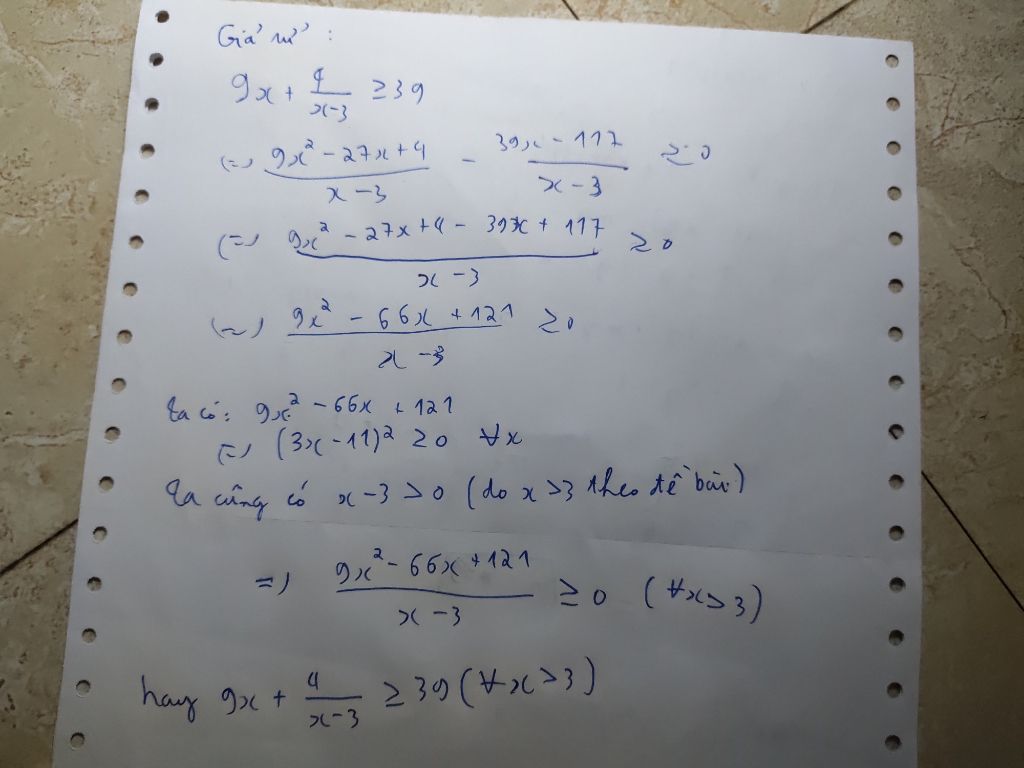 Giả sử :
9x + 4/(x-3) ≥ 39
(=) (9x² - 27x + 4)/(x - 3) - (39x - 117)/(x - 3) ≥ 0
(=) (9x² - 27x + 4 - 39x + 117)/(x - 3) ≥ 0
(=) (9x² - 66x + 121)/(x - 3) ≥ 0
Ta có: 9x² - 66x + 121
(=) (3x - 11)² ≥ 0 ∀x
Ta cũng có x - 3 > 0 (do x > 3 theo đề bài)
=) (9x² - 66x + 121)/(x - 3) ≥ 0 (∀x > 3)
hay 9x + 4/(x-3) ≥ 39 (∀x > 3)